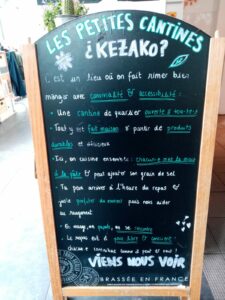 LES PETITES CANTINES
¿KEZAKO?
C'est un lieu où on fait rimer bien
manger avec convivialité & accessibilité :
- Une cantine de quartier ouverte à tou·te·s
- Tout y est fait maison à partir de produits
durables et délicieux
- Ici, on cuisine ensemble : chacun·e met la main
à la pâte & peut ajouter son grain de sel
- Tu peux arriver à l'heure du repas &
juste profiter du moment puis nous aider
au rangement
- Et aussi, on papote, on se rencontre
- Le repas est à prix libre & conscient :
chacun·e contribue comme il peut et veut !
VIENS NOUS VOIR
BRASSÉE EN FRANCE